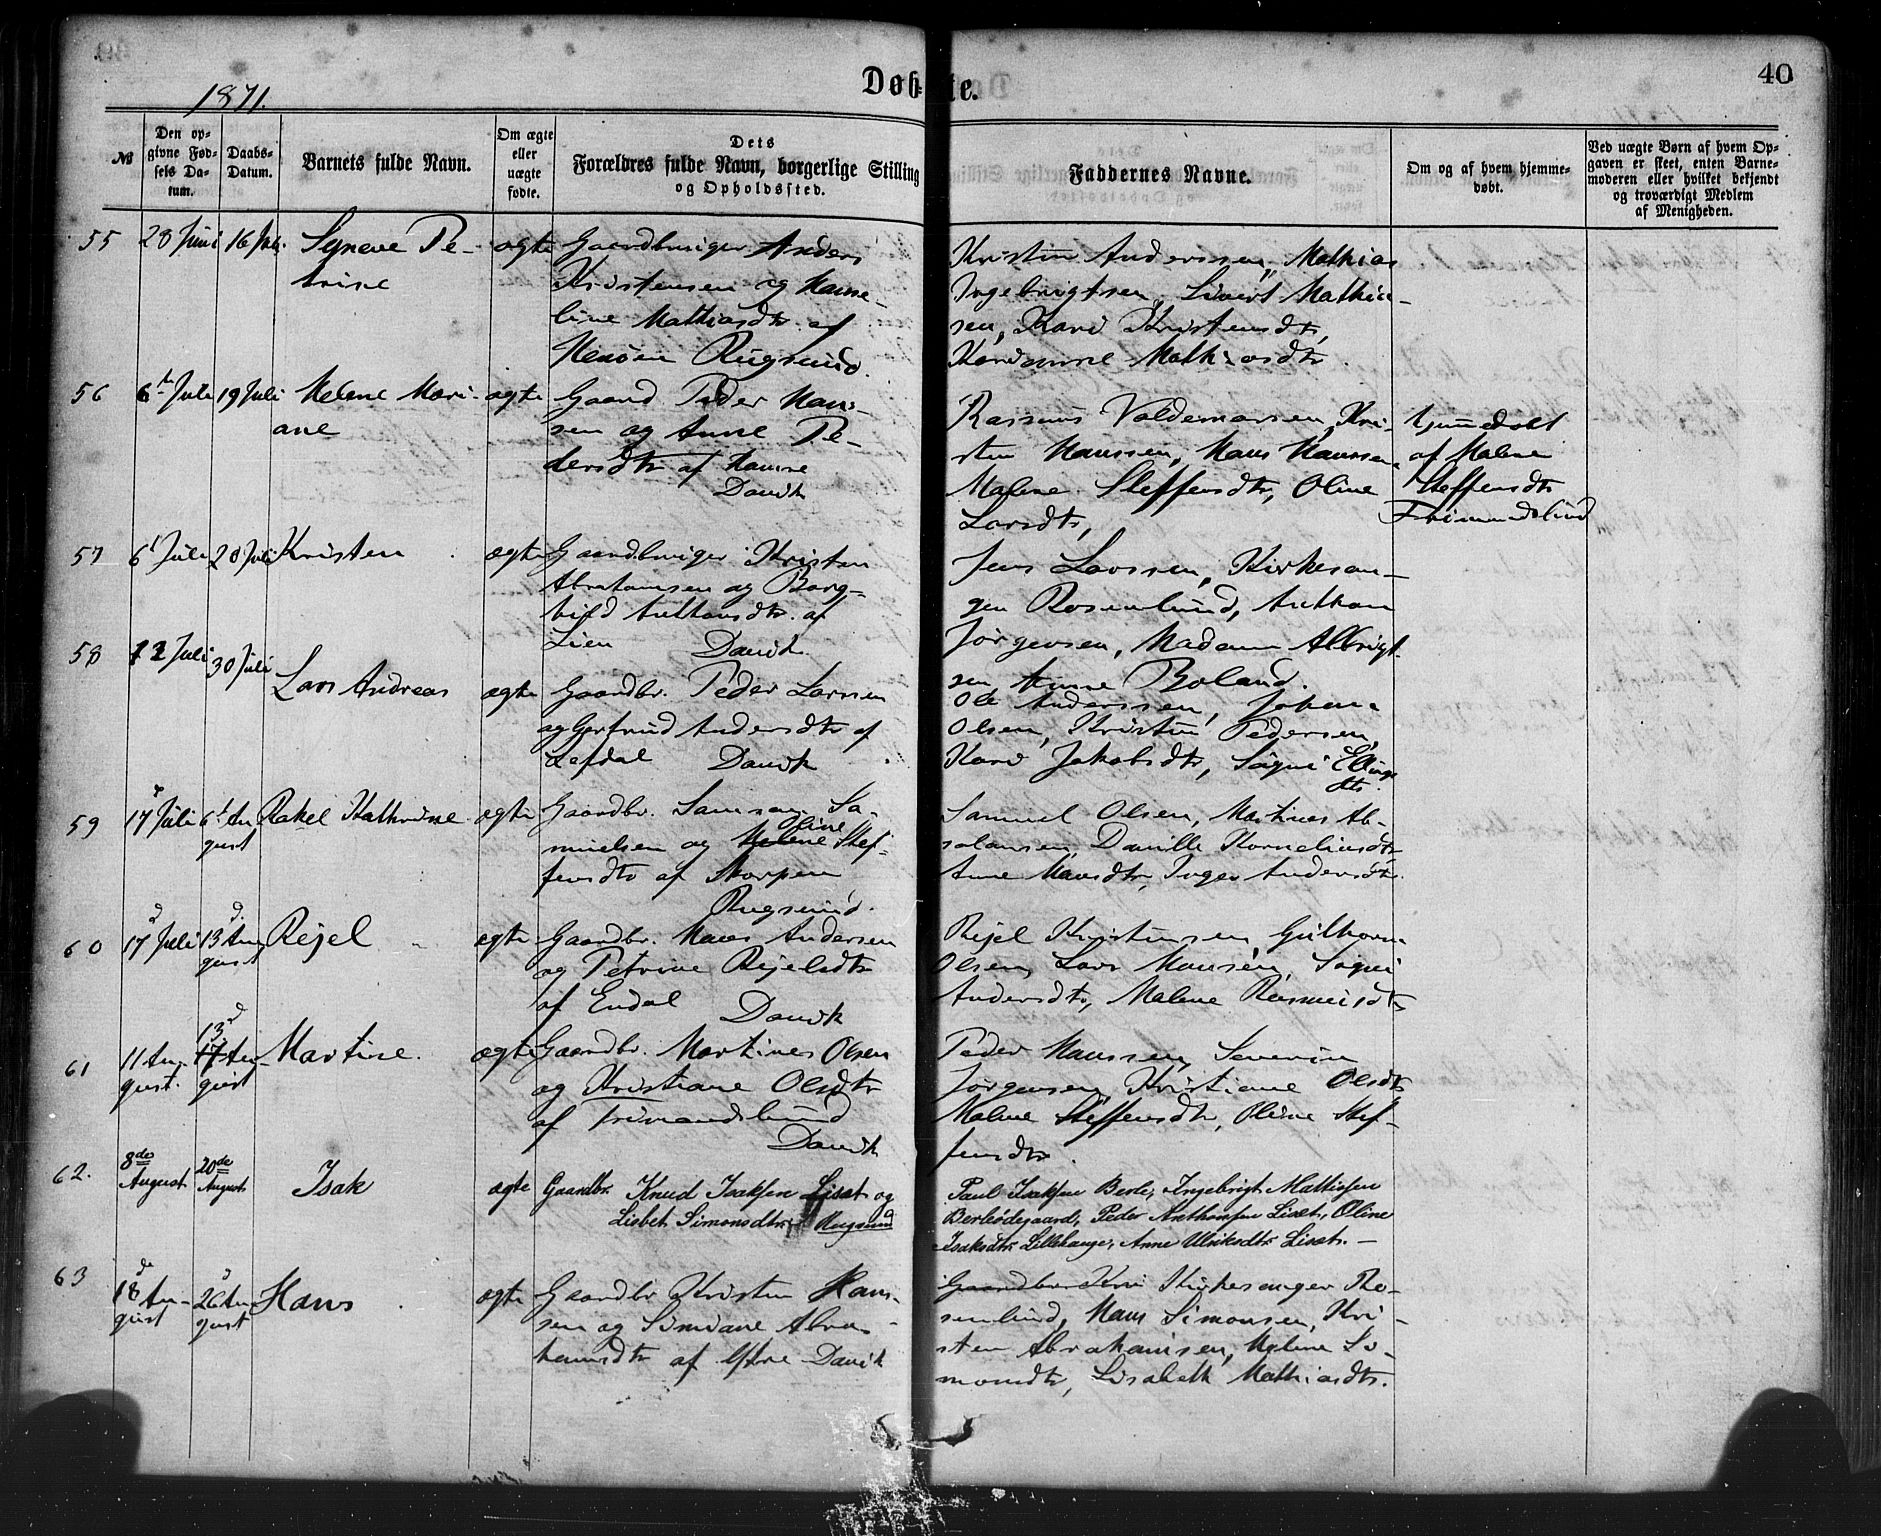 40
1871.
Døbte.
№
Den opgivne Fødsels Datum.
Daabs-Datum.
Barnets fulde Navn.
Om ægte eller uægte fødte.
Dets Forældres fulde Navn, borgerlige Stilling og Opholdssted.
Faddernes Navne.
Om og af hvem hjemmedøbt.
Ved uægte Børn af hvem Opgaven er skeet, enten Barnemoderen eller hvilket bekjendt og troværdigt Medlem af Menigheden.
55 28 Juni 16 Juli Syneve Pe-
trine
ægte Gaardbruger Anders
Kristensen og Hanse-
line Mathiasdtr. af
Rugsund.
Kristen Anderssen, Mathias
Ingebrigtsen, Sivert Mathia-
sen, Kari Kristensdtr,
Mathiasdtr.
56 6 Juli 19 Juli Helene Mari-
ane
ægte Gaard Peder Han-
sen og Anne Pe-
dersdtr af Hamre
Davik
Rasmus Valdemarsen, Kri-
sten Hanssen, Hans Hanssen,
Malene Steffensdtr, Oline
Larsdtr,
Hjemmedøbt
af Malene
Steffensdtr
Frimandslund
57 6 Juli 20 Juli Kristen
ægte Gaardbruger Kristen
Abrahamsen og Borg-
hild Anthonsdtr. af
Lien Davik.
Jens Larssen, Kirkesan-
ger Rosenlund, Anthon
Jørgensen, Madam Albrigt-
sen Anne Boland.
58 12 Juli 30 Juli Lars Andreas
ægte Gaardbr. Peder Larssen
og Gertrud Andersdtr af
Lefdal Davik
Ole Anderssen, Johan
Olsen, Kristen Pedersen,
Kari Jakobsdtr, Søgni Ellings
dtr.
59 17 Juli 6 Au-
gust
Rakel Kathrine
ægte Gaardbr. Samson Sa-
muelsen og Malene Oline Stef-
fensdtr af Skorpen
Rugsund.
Samuel Olsen, Martines Ab-
salonsen, Danille Korneliusdtr
Anne Hansdtr, Inger Andersdtr.
60 17 Juli 13 Au-
gust
Rejel
ægte Gaardbr. Hans Andersen
og Petrine Rejelsdtr
af Endal Davik
Rejel Kristensen, Guthorm
Olsen, Lars Hansen, Søgni
Andersdtr, Malene Rasmusdtr
61 11 Au-
gust.
13
17 Au-
gust
Martine.
ægte Gaardbr. Martines Olsen
og Kristiane Olsdtr
af Frimandslund
Davik
Peder Hanssen, Severin
Jørgensen, Kristiane Olsdtr
Malene Steffensdtr, Oline Stef-
fensdtr.
62. 8de August 20de August Isak
ægte Gaardbr. Knud Isaksen Liset og
Lisbet Simonsdtr. Rugsund
Paul Isaksen Berle, Ingebrigt Mattisen
Berleødegaard, Peder Anthonsen Liset, Oline
Isaksdtr Lillehauge, Anne Ulriksdtr Liset. –
63 18 Au-
gust
26 Au-
gust
Hans
ægte Gaardbr Kristen Han-
sen og Simiane Abra-
hamsdtr af Ytre Davik
Gaardbr Kri Kirkesanger Ro-
senlund, Hans Simonsen, Kri-
sten Abrahamsen, Malene Si-
monsdtr, Lisabeth Mathiasdtr.